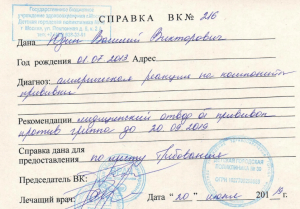 СПРАВКА ВК № 216
Дана Юдин Василий Викторович
Год рождения 01.07.2012 Адрес
Диагноз: аллергическая реакция на компоненты
прививки
Рекомендации медицинский отвод от прививок
против гриппа до 20.09.2019
Справка дана для
предоставления по месту требования
Председатель ВК:
Лечащий врач:
Дата "20" июня 2019